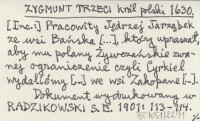 ZYGMUNT TRZECI król polski 1630.
[Inc.:] Pracowity Jędrzej Jarząbek
ze wsi Bańska [...], który upraszał,
aby mu polany Żywczańskie zwa-
nej ograniczenie czyli Cyrkiel
wydaliśmy [...] we wsi Zakopane [...].
Dokument wydrukowany w
RADZIKOWSKI S. E. 1901: 113-114.